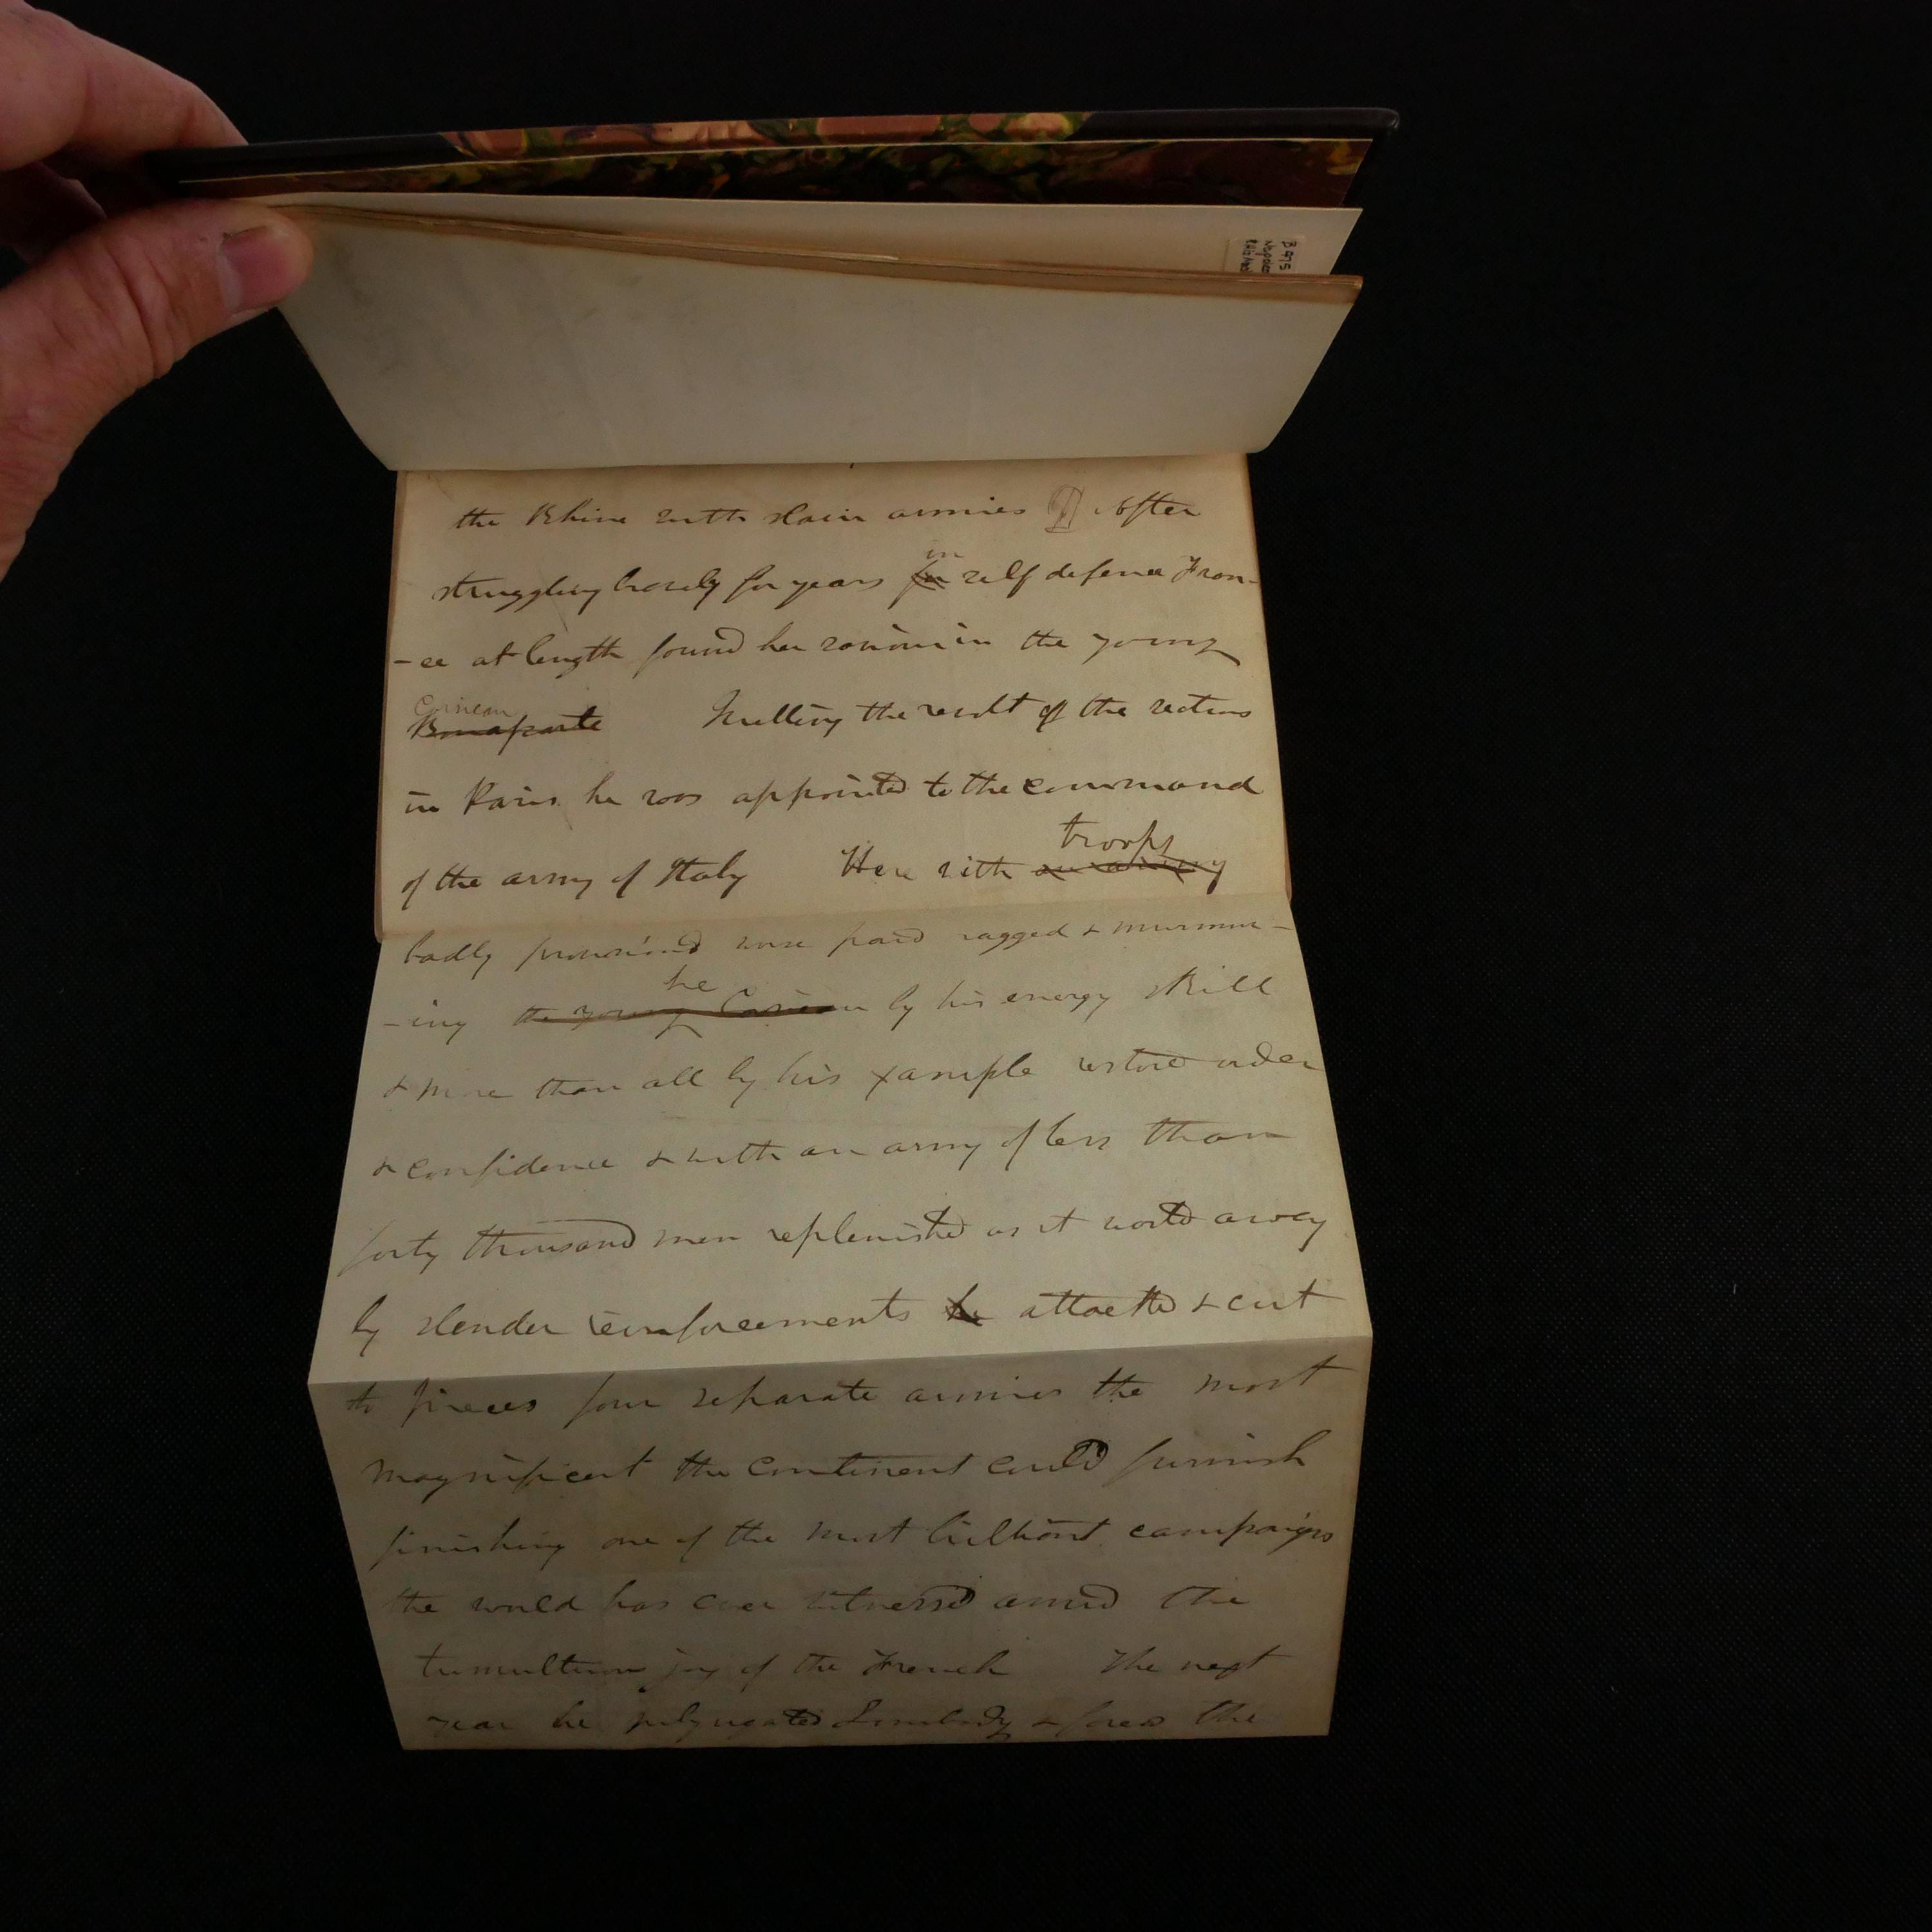 B 975
the Rhine with slain armies After
struggling bravely for years for in self defence Fran-
-ce at length found her saviour in the young
Bonaparte Corsican Quelling the revolt of the sections
in Paris he was appointed to the command
of the army of Italy Here with an army troops
badly provisioned worse paid ragged & murmur-
-ing the young Corsican he by his energy skill
& more than all by his xample restored order
& confidence & with an army of less than
forty thousand men replenished as it wasted away
by slender reinforcements he attacked & cut
to pieces four separate armies the most
magnificent the continent could furnish
finishing one of the most brilliant campaigns
the world has ever witnessed amid the
tumultuous joy of the French The next
year he subjugated Lombardy & forced the